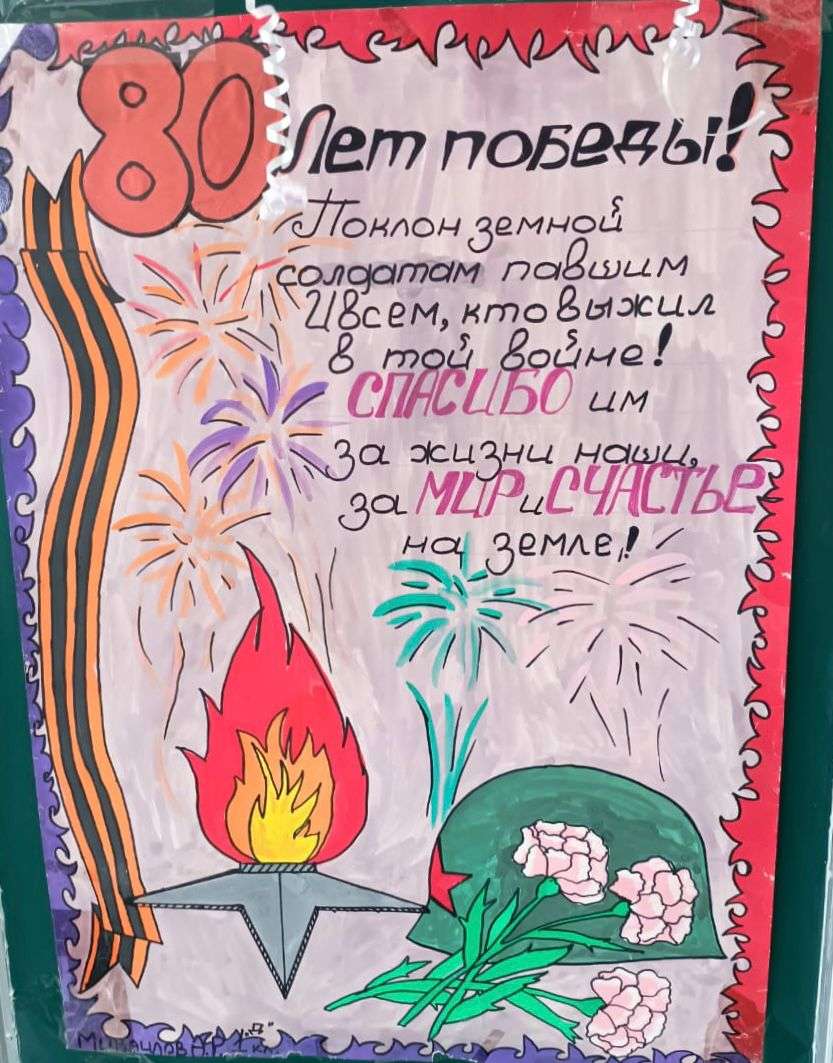 80 Лет победы!
Поклон земной
солдатам павшим
И всем, кто выжил
в той войне!
СПАСИБО им
за жизни наши,
за МИР и СЧАСТЬЕ
на земле!
Михайлов А.Р. 1 "Д" кл.